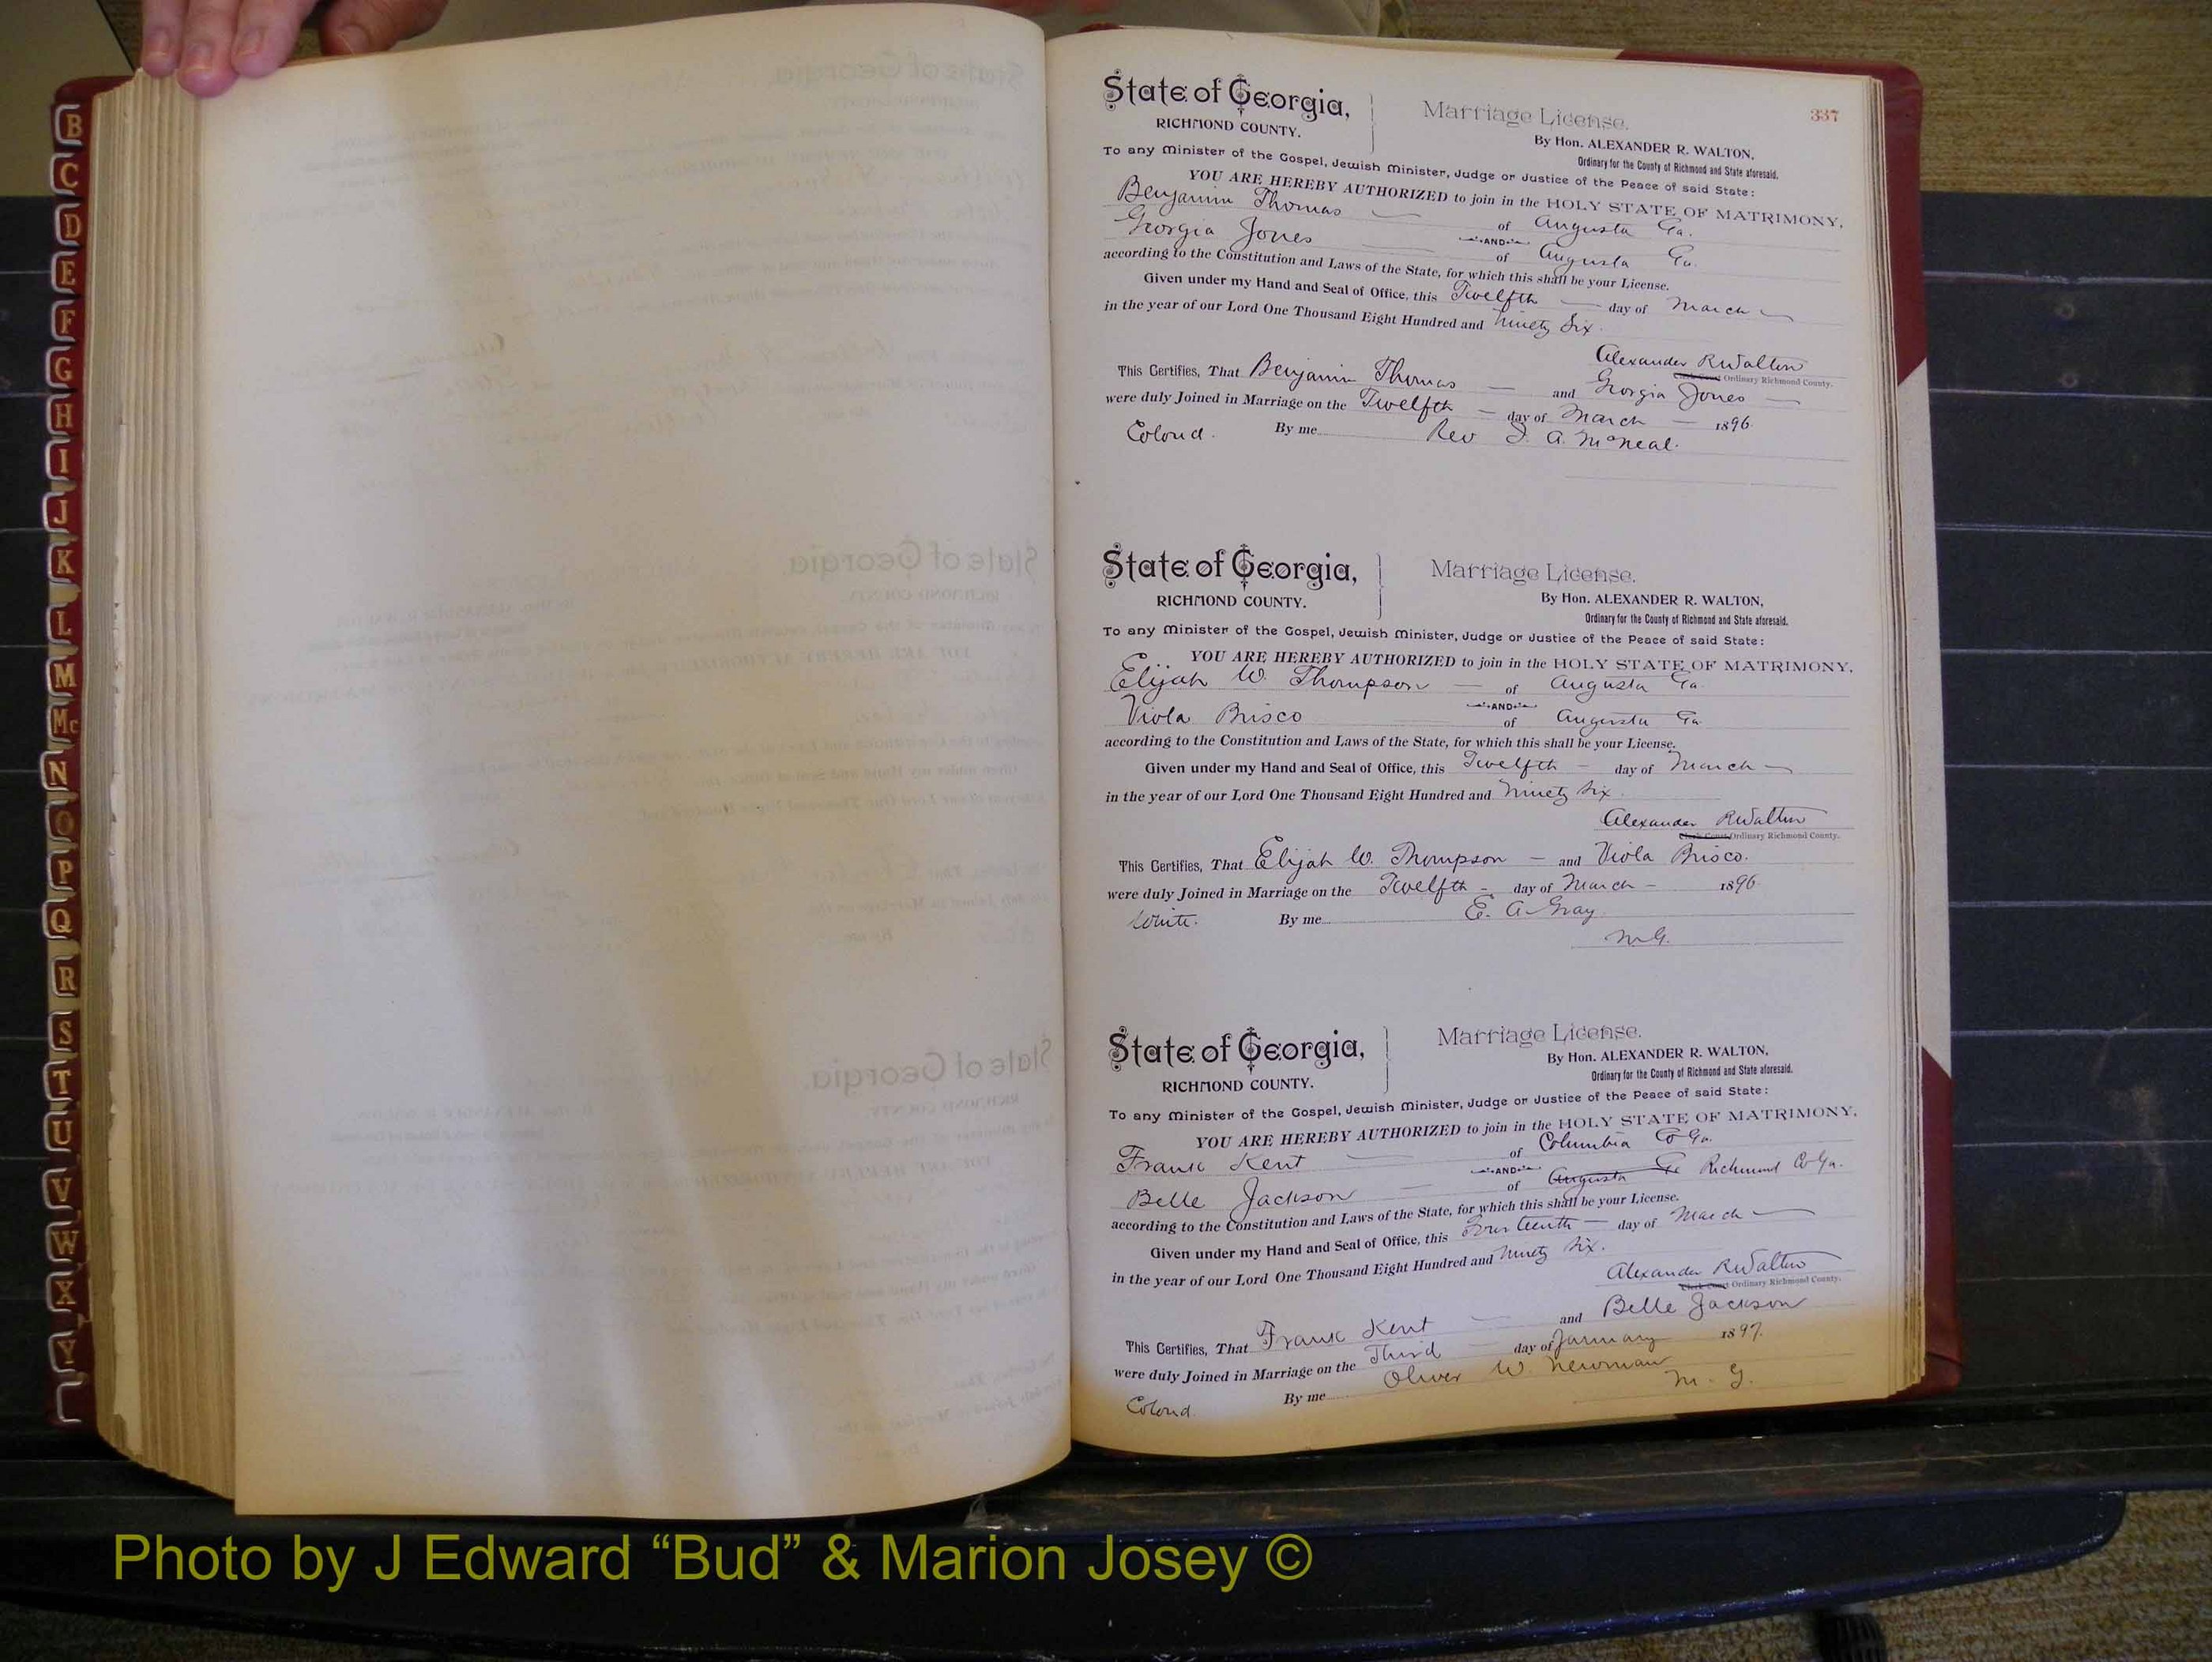 B
C
D
E
F
G
H
I
J
K
L
M
Mc
N
O
P
Q
R
S
T
U
V
W
X
Y
337
State of Georgia,
RICHMOND COUNTY.
Marriage License.
By Hon. ALEXANDER R. WALTON,
Ordinary for the County of Richmond and State aforesaid.
To any Minister of the Gospel, Jewish Minister, Judge or Justice of the Peace of said State:
YOU ARE HEREBY AUTHORIZED to join in the HOLY STATE OF MATRIMONY,
Benjamin Thomas of Augusta Ga.
AND
Georgia Jones of Augusta Ga.
according to the Constitution and Laws of the State, for which this shall be your License.
Given under my Hand and Seal of Office, this Twelfth day of March
in the year of our Lord One Thousand Eight Hundred and Ninety Six.
Alexander R Walton
Clerk Court Ordinary Richmond County.
This Certifies, That Benjamin Thomas and Georgia Jones
were duly Joined in Marriage on the Twelfth day of March 1896
Colord. By me Rev A. McNeal.
State of Georgia,
RICHMOND COUNTY.
Marriage License.
By Hon. ALEXANDER R. WALTON,
Ordinary for the County of Richmond and State aforesaid.
To any Minister of the Gospel, Jewish Minister, Judge or Justice of the Peace of said State:
YOU ARE HEREBY AUTHORIZED to join in the HOLY STATE OF MATRIMONY,
Elijah W. Thompson of Augusta Ga.
AND
Viola Brisco of Augusta Ga.
according to the Constitution and Laws of the State, for which this shall be your License.
Given under my Hand and Seal of Office, this Twelfth day of March
in the year of our Lord One Thousand Eight Hundred and Ninety Six.
Alexander R Walton
Clerk Court Ordinary Richmond County.
This Certifies, That Elijah W. Thompson and Viola Brisco.
were duly Joined in Marriage on the Twelfth day of March 1896
White. By me E. A. Gray
M.G.
State of Georgia,
RICHMOND COUNTY.
Marriage License.
By Hon. ALEXANDER R. WALTON,
Ordinary for the County of Richmond and State aforesaid.
To any Minister of the Gospel, Jewish Minister, Judge or Justice of the Peace of said State:
YOU ARE HEREBY AUTHORIZED to join in the HOLY STATE OF MATRIMONY,
Frank Kent of Columbia Co Ga.
AND
Belle Jackson of Augusta Ga Richmond Co Ga.
according to the Constitution and Laws of the State, for which this shall be your License.
Given under my Hand and Seal of Office, this Fourteenth day of March
in the year of our Lord One Thousand Eight Hundred and Ninety Six.
Alexander R Walton
Clerk Court Ordinary Richmond County.
This Certifies, That Frank Kent and Belle Jackson
were duly Joined in Marriage on the Third day of January 1897.
By me Oliver W. Newman
Colord M. G.
Photo by J Edward “Bud” & Marion Josey ©